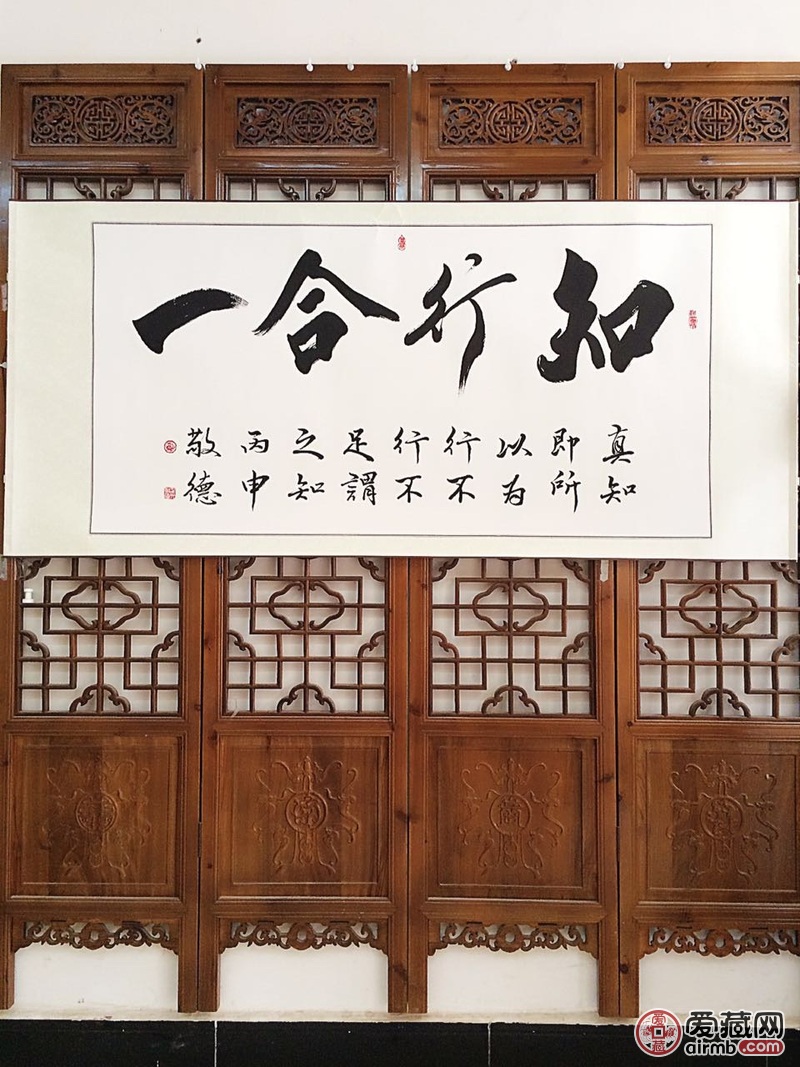 知行合一
真知
即所
以为
行不
行不
足謂
之知
丙申
敬德
爱藏网
airmb.com